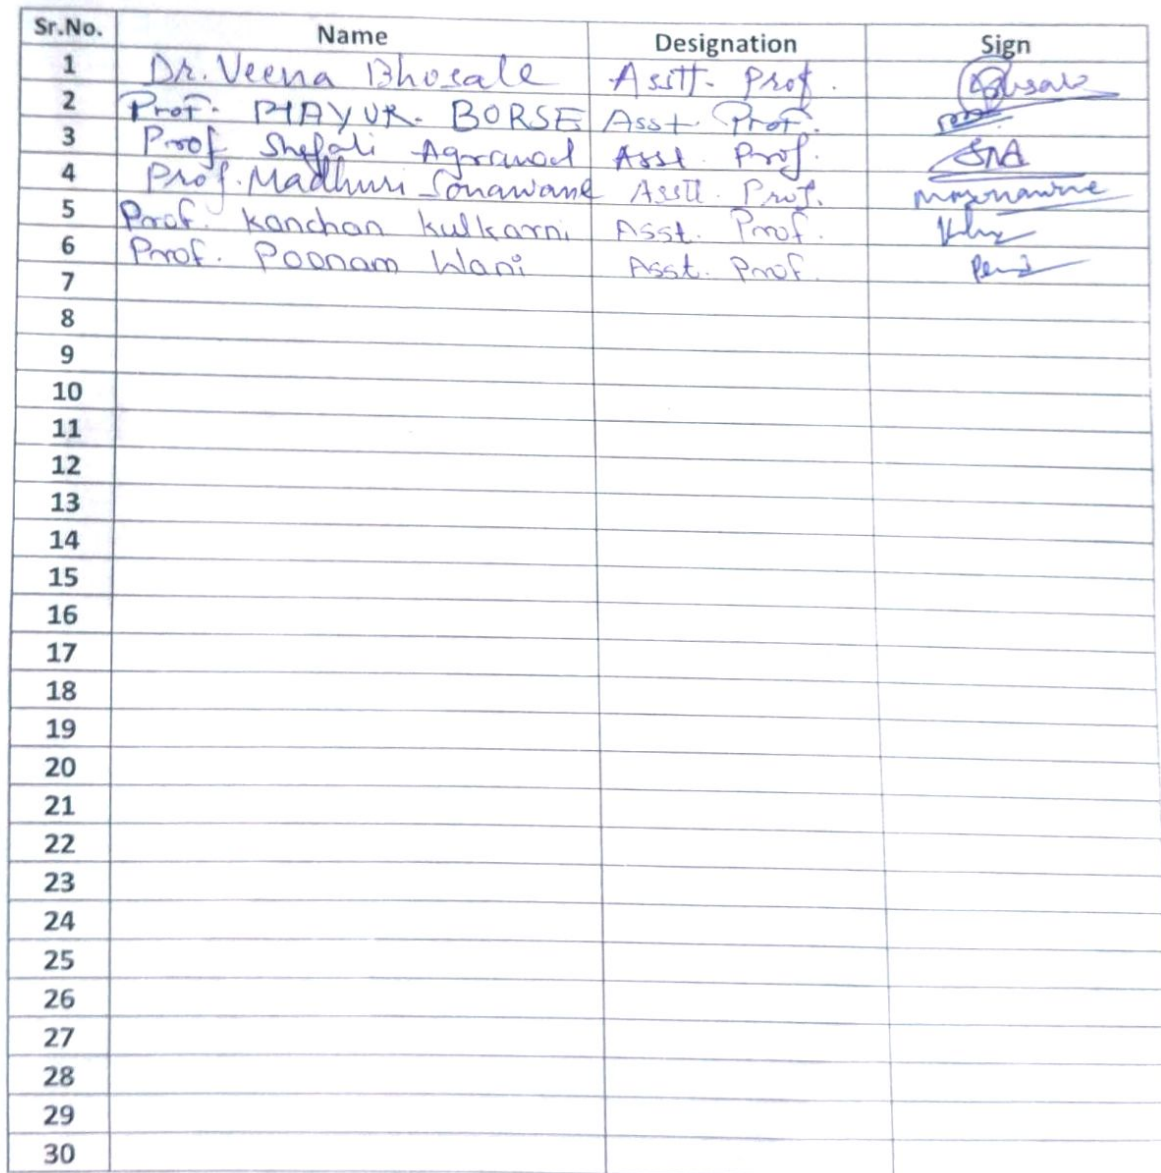 Sr.No. Name Designation Sign
1 Dr. Veena Bhosale Asstt. Prof.
2 Prof. MAYUR. BORSE Asst Prof.
3 Prof Shefali Agrawal Asst. Prof. SNA
4 Prof. Madhuri Sonawane Asstt. Prof. Sonawane
5 Prof. Kanchan Kulkarni Asst. Prof.
6 Prof. Poonam Wani Asst. Prof.
7
8
9
10
11
12
13
14
15
16
17
18
19
20
21
22
23
24
25
26
27
28
29
30